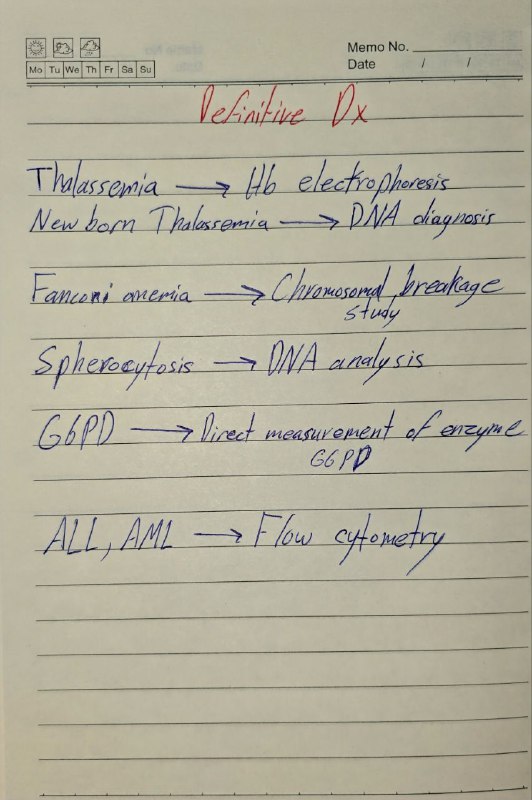 Memo No.
Mo Tu We Th Fr Sa Su
Date / /
Definitive Dx
Thalassemia → Hb electrophoresis
New born Thalassemia → DNA diagnosis
Fanconi anemia → Chromosomal breakage
study
Spherocytosis → DNA analysis
G6PD → Direct measurement of enzyme
G6PD
ALL, AML → Flow cytometry